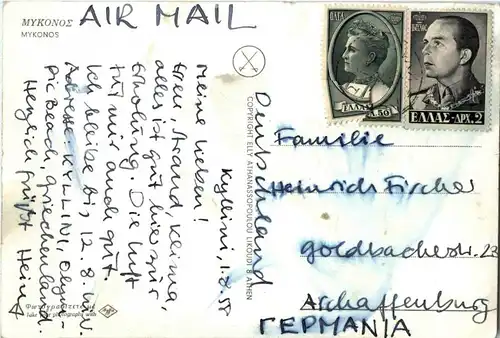 ΜΥΚΟΝΟΣ
MYKONOS
AIR MAIL
Kyllini, 1.8.58
Meine Lieben!
Essen, Strand, Klima,
alles ist gut hier zur
Erholung. Die Luft
tut mir auch gut.
Ich bleibe bis 12.8. u. w.
Adresse: KYLLINI, Olym-
pic Beach, Griechenland.
Herzlich grüßt Heinz
Φωτογραφίσετε
Take your photographs with
COPYRIGHT ELLY ATHANASSOPOULOU LIKOUDI 8 ATHEN
ΕΛΛΑΣ-ΔΡΧ.2
Deutschland
Familie
Heinrich Fischer
Goldbacherstr. 22
Aschaffenburg
ΓΕΡΜΑΝΙΑ